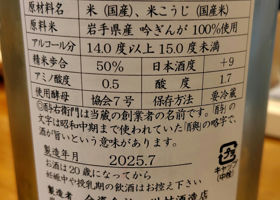 原材料名 米(国産)、米こうじ(国産米)
原料米 岩手県産 吟ぎんが 100%使用
アルコール分 14.0度以上15.0度未満
精米歩合 50% 日本酒度 +9
アミノ酸度 0.5 酸度 1.7
使用酵母 協会7号 保存方法 要冷蔵
◎酉右衛門は当蔵の創業者の名前です。「酉」の
文字は昭和中期まで使われていた「酒」の略字で、
酒が旨いという意味があります。
製造年月 2025.7
お酒は20歳になってから
妊娠中や授乳期の飲酒はお控え下さい
製造者 川村酒造店
キャップ
(中栓)